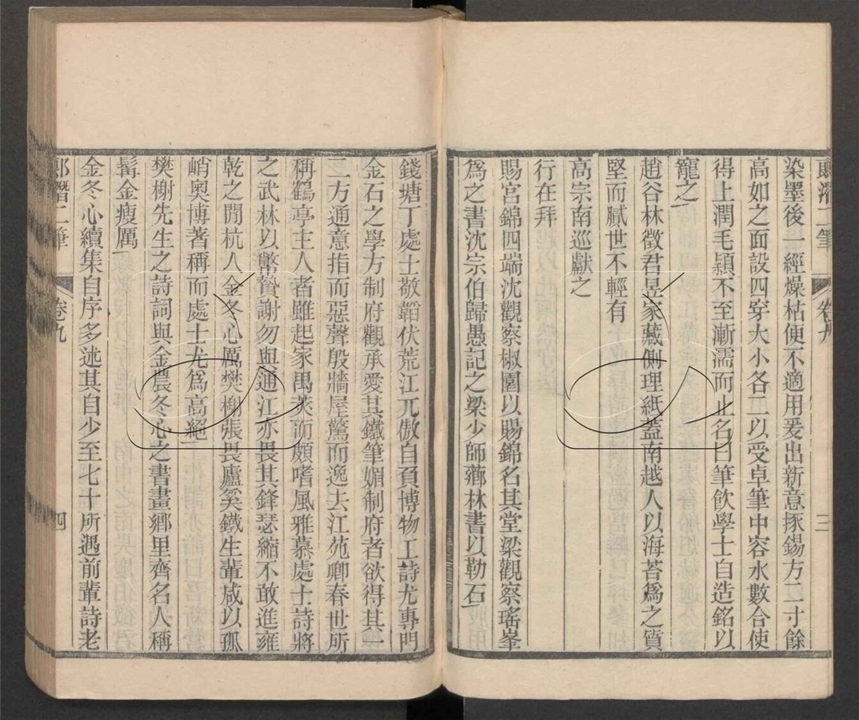 郎潛二筆 卷九 三
染墨後一經燥枯便不適用爰出新意琢錫方二寸餘
高如之面設四穿大小各二以受卓筆中容水數合使
得上潤毛穎不至漸濡而止名曰筆飲學士自造銘以
寵之
趙谷林徵君昱家藏側理紙蓋南越人以海苔爲之質
堅而膩世不輕有
高宗南巡獻之
行在拜
賜宮錦四端沈觀察椒園以賜錦名其堂梁觀察瑤峯
爲之書沈宗伯歸愚記之梁少師薌林書以勒石
錢塘丁處士敬韜伏荒江兀傲自負博物工詩尤專門
金石之學方制府觀承愛其鐵筆媚制府者欲得其一
二方通意指而惡聲殷牆屋驚而逸去江苑卿春世所
稱鶴亭主人者雖起家禺筴而頗嗜風雅慕處士詩將
之武林以幣贄謝勿與通江亦畏其鋒瑟縮不敢進雍
乾之閒杭人金冬心厲樊榭張畏廬奚鐵生輩咸以孤
峭奧博著稱而處士尤爲高絕
樊榭先生之詩詞與金農冬心之書畫鄉里齊名人稱
髯金瘦厲
金冬心續集自序多述其自少至七十所遇前輩詩老
郎潛二筆 卷九 四